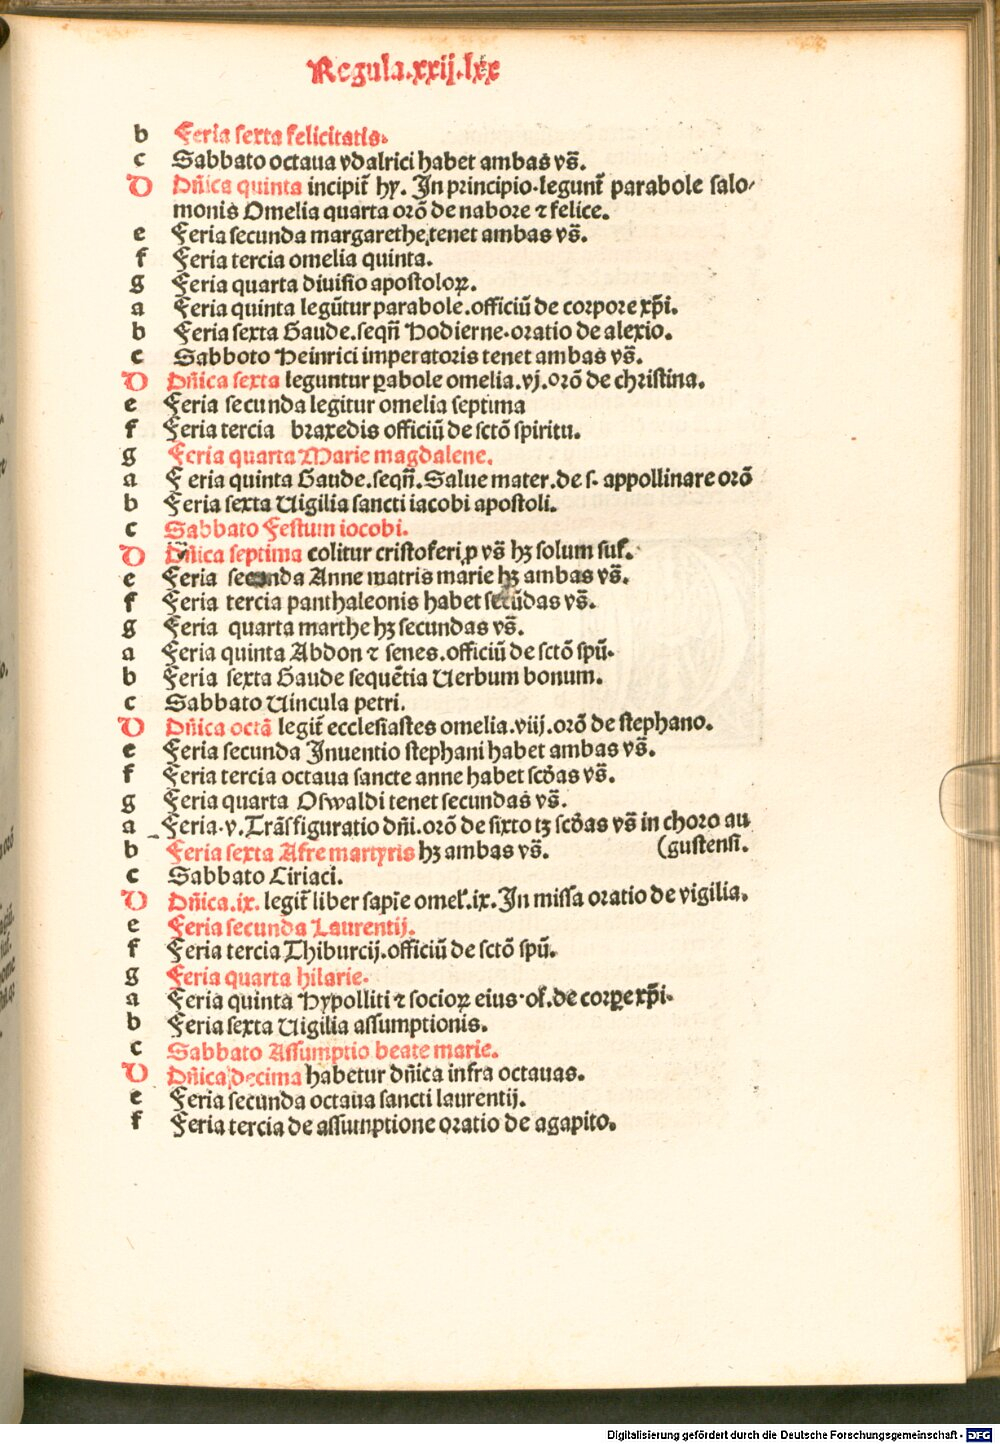 Regula.xxij.lxx
b Feria sexta felicitatis.
c Sabbato octaua vdalrici habet ambas vs̄.
D Dn̄ica quinta incipit̄ hy. In principio.legunt̄ parabole salo⸗
monis Omelia quarta orō de nabore ⁊ felice.
e Feria secunda margarethe,tenet ambas vs̄.
f Feria tercia omelia quinta.
g Feria quarta diuisio apostoloꝝ.
a Feria quinta legūtur parabole.officiū de corpore xp̄i.
b Feria sexta Gaude.seqn̄ Hodierne.oratio de alexio.
c Sabboto Heinrici imperatoris tenet ambas vs̄.
D Dn̄ica sexta leguntur ꝑabole omelia.vj.orō de christina.
e Feria secunda legitur omelia septima
f Feria tercia braxedis officiū de sctō spiritu.
g Feria quarta Marie magdalene.
a Feria quinta Gaude.seqn̄.Salue mater.de s. appollinare orō
b Feria sexta Uigilia sancti iacobi apostoli.
c Sabbato Festum iocobi.
D Dn̄ica septima colitur cristoferi,ꝓ vs̄ hꝫ solum suf.
e Feria secunda Anne matris marie hꝫ ambas vs̄.
f Feria tercia panthaleonis habet secūdas vs̄.
g Feria quarta marthe hꝫ secundas vs̄.
a Feria quinta Abdon ⁊ senes.officiū de sctō spū.
b Feria sexta Gaude sequētia Uerbum bonum.
c Sabbato Uincula petri.
D Dn̄ica octā legit̄ ecclesiastes omelia.viij.orō de stephano.
e Feria secunda Inuentio stephani habet ambas vs̄.
f Feria tercia octaua sancte anne habet scd̄as vs̄.
g Feria quarta Oswaldi tenet secundas vs̄.
a Feria.v.Trāsfiguratio dn̄i.orō de sixto tꝫ scd̄as vs̄ in choro au
b Feria sexta Afre martyris hꝫ ambas vs̄. (gustensi.
c Sabbato Ciriaci.
D Dn̄ica.ix.legit̄ liber sapīe omel̄.ix.In missa oratio de vigilia.
e Feria secunda Laurentij.
f Feria tercia Thiburcij.officiū de sctō spū.
g Feria quarta hilarie.
a Feria quinta Hypolliti ⁊ socioꝝ eius.of.de corꝑe xp̄i.
b Feria sexta Uigilia assumptionis.
c Sabbato Assumptio beate marie.
D Dn̄ica decima habetur dn̄ica infra octauas.
e Feria secunda octaua sancti laurentij.
f Feria tercia de assumptione oratio de agapito.
Digitalisierung gefördert durch die Deutsche Forschungsgemeinschaft - DFG